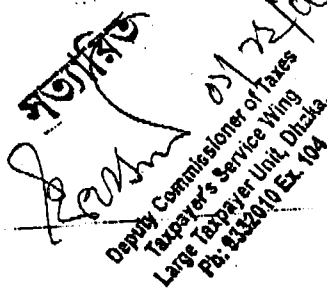 সত্যায়িত
Deputy Commissioner of Taxes
Taxpayer's Service Wing
Large Taxpayer Unit, Dhaka.
Ph: 9332010 Ex. 104